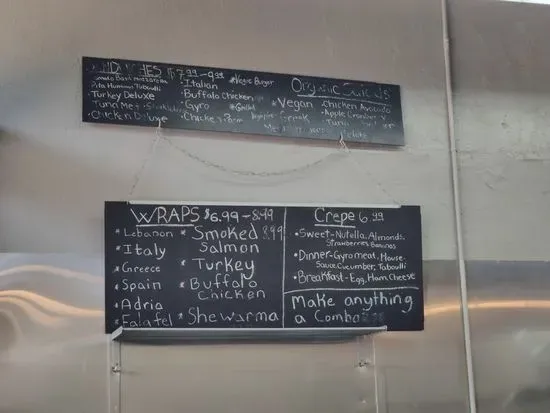 SANDWICHES $7.99-9.99
Tomato Basil Mozzarella
Pita Hummus Tabouli
Turkey Deluxe
Tuna Melt
Chicken Deluxe
Italian
Buffalo Chicken
Gyro
Chicken Parm
Veggie Burger
Organic Salads
Vegan
Greek
Chicken Avocado
Apple Cranberry
Tuna
WRAPS $6.99-8.99
* Lebanon
* Italy
* Greece
* Spain
* Adria
* Falafel
* Smoked 8.99
Salmon
* Turkey
* Buffalo
Chicken
* Shewarma
Crepe 6.99
• Sweet-Nutella, Almonds,
Strawberries Bananas
• Dinner-Gyro meat, House
Sauce Cucumber, Taboulli
• Breakfast-Egg, Ham, Cheese
Make anything
a Combo